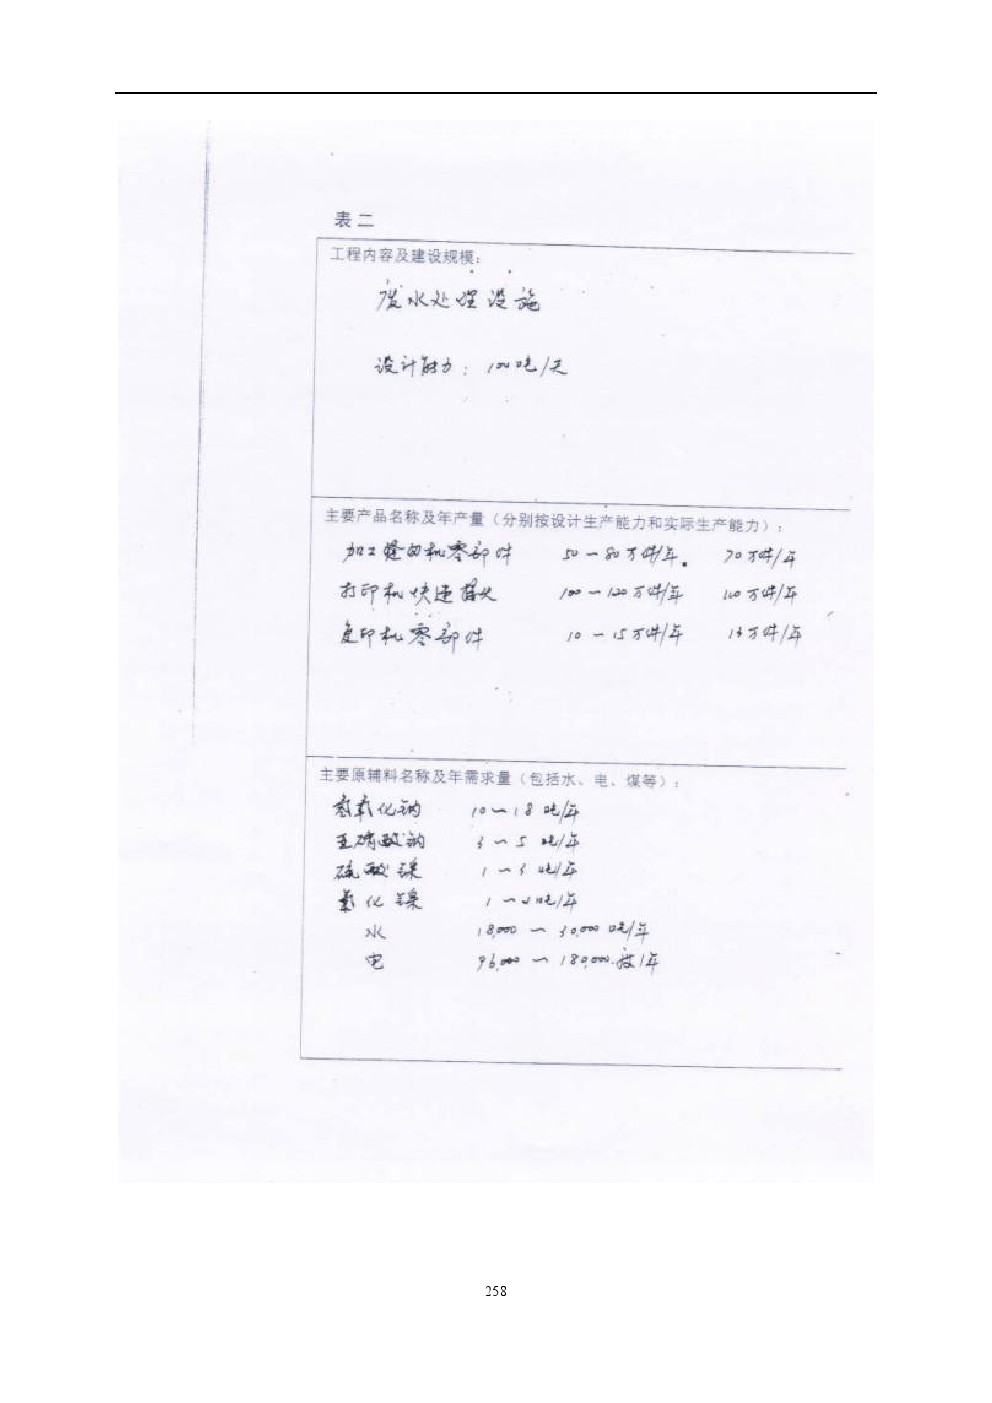 表二
工程内容及建设规模：
废水处理设施
设计能力：100吨/天
主要产品名称及年产量（分别按设计生产能力和实际生产能力）：
加工缝纫机零部件 50～80万件/年. 70万件/年
打印机快速接头 100～120万件/年 万件/年
复印机零部件 10～15万件/年 13万件/年
主要原辅料名称及年需求量（包括水、电、煤等）：
氢氧化钠 10～18吨/年
亚磷酸钠 3～5吨/年
硫酸镍 1～3吨/年
氯化镍 1～2吨/年
水 18,000～30,000吨/年
电 96,000～180,000.度/年
258